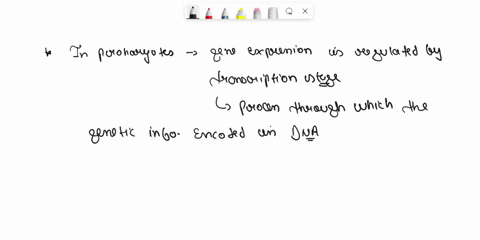 * In prokaryotes → gene expression is regulated by
transcription stage
↳ process through which the
genetic info. Encoded in DNA